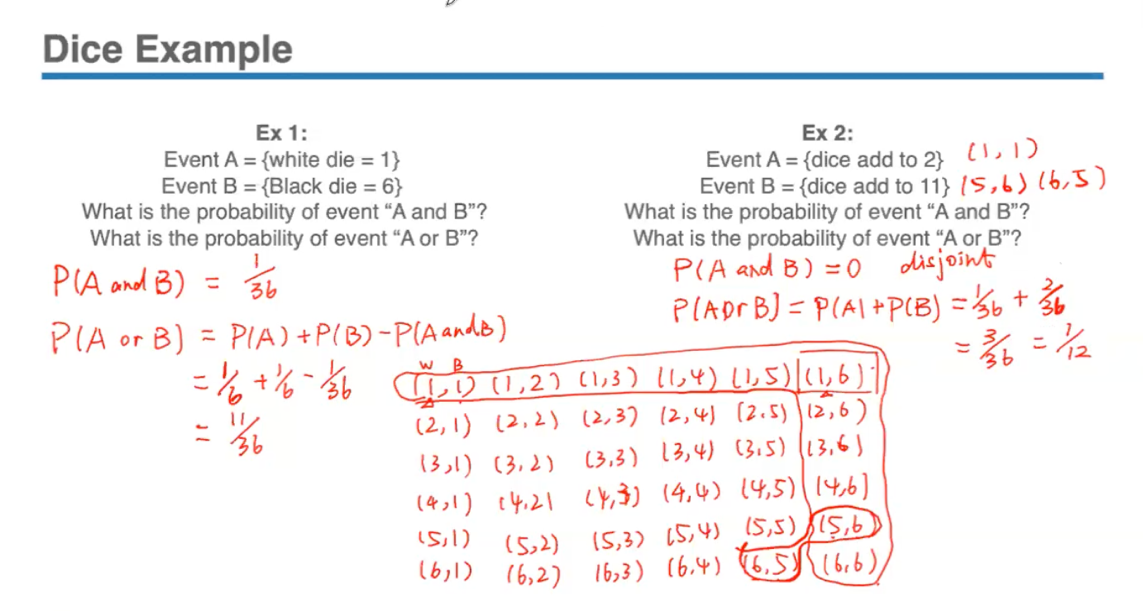 Dice Example
Ex 1:
Event A = {white die = 1}
Event B = {Black die = 6}
What is the probability of event “A and B”?
What is the probability of event “A or B”?
P(A and B) = 1/36
P(A or B) = P(A) + P(B) - P(A and B)
= 1/6 + 1/6 - 1/36
= 11/36
Ex 2:
Event A = {dice add to 2} (1,1)
Event B = {dice add to 11} (5,6) (6,5)
What is the probability of event “A and B”?
What is the probability of event “A or B”?
P(A and B) = 0 disjoint
P(A or B) = P(A) + P(B) = 1/36 + 2/36
= 3/36 = 1/12
W B
(1,1) (1,2) (1,3) (1,4) (1,5) (1,6)
(2,1) (2,2) (2,3) (2,4) (2,5) (2,6)
(3,1) (3,2) (3,3) (3,4) (3,5) (3,6)
(4,1) (4,2) (4,3) (4,4) (4,5) (4,6)
(5,1) (5,2) (5,3) (5,4) (5,5) (5,6)
(6,1) (6,2) (6,3) (6,4) (6,5) (6,6)